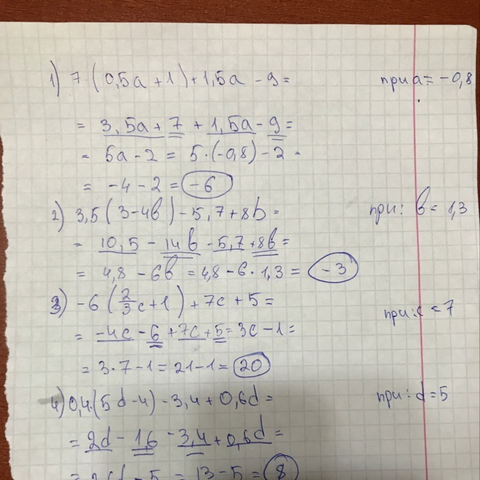 1) 7(0,5a+1)+1,5a-9= при a=-0,8
= 3,5a+7+1,5a-9=
= 5a-2 = 5·(-0,8)-2=
= -4-2=-6
2) 3,5(3-4b)-5,7+8b= при: b=1,3
= 10,5-14b-5,7+8b=
= 4,8-6b=4,8-6·1,3=-3
3) -6(2/3c+1)+7c+5= при: c=7
= -4c-6+7c+5=3c-1=
= 3·7-1=21-1=20
4) 0,4(5d-4)-3,4+0,6d= при: d=5
= 2d-1,6-3,4+0,6d=
-5=13-5=8